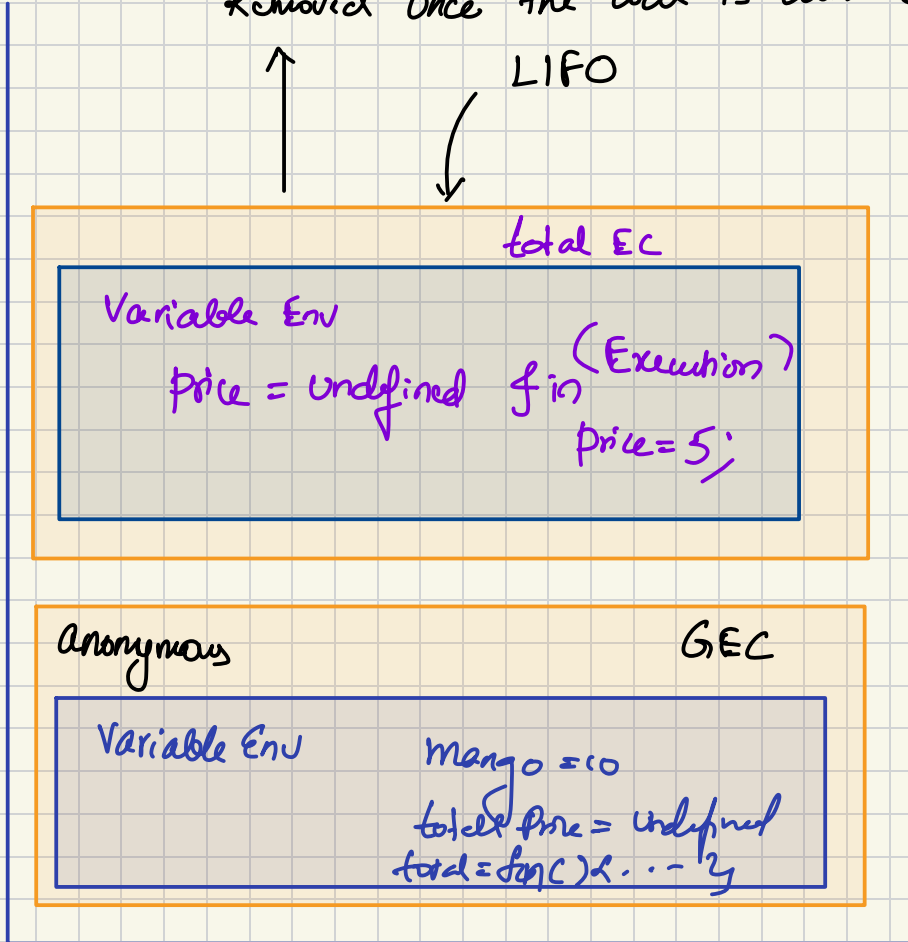 Removed Once the code is
LIFO
total EC
Variable Env
Price = Undefined & in (Execution)
Price = 5;
Anonymous GEC
Variable Env
Mango = 10
total Price = Undefined
total = fn() { . . . - }